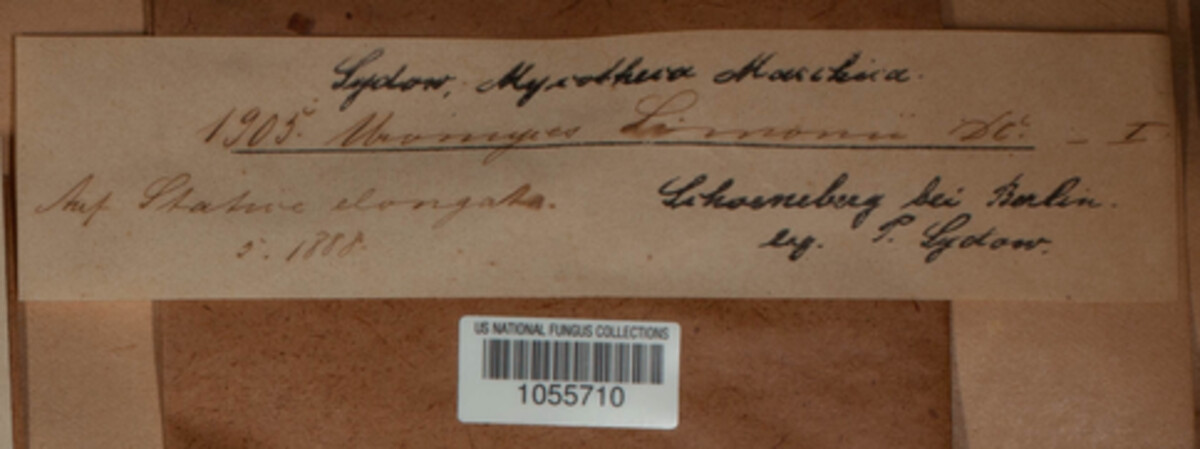 Sydow, Mycotheca Marchica.
1905. Uromyces Limonii DC. - I
Auf Statice elongata.
Schoeneberg bei Berlin.
5. 1888.
leg. P. Sydow.
US NATIONAL FUNGUS COLLECTIONS
1055710